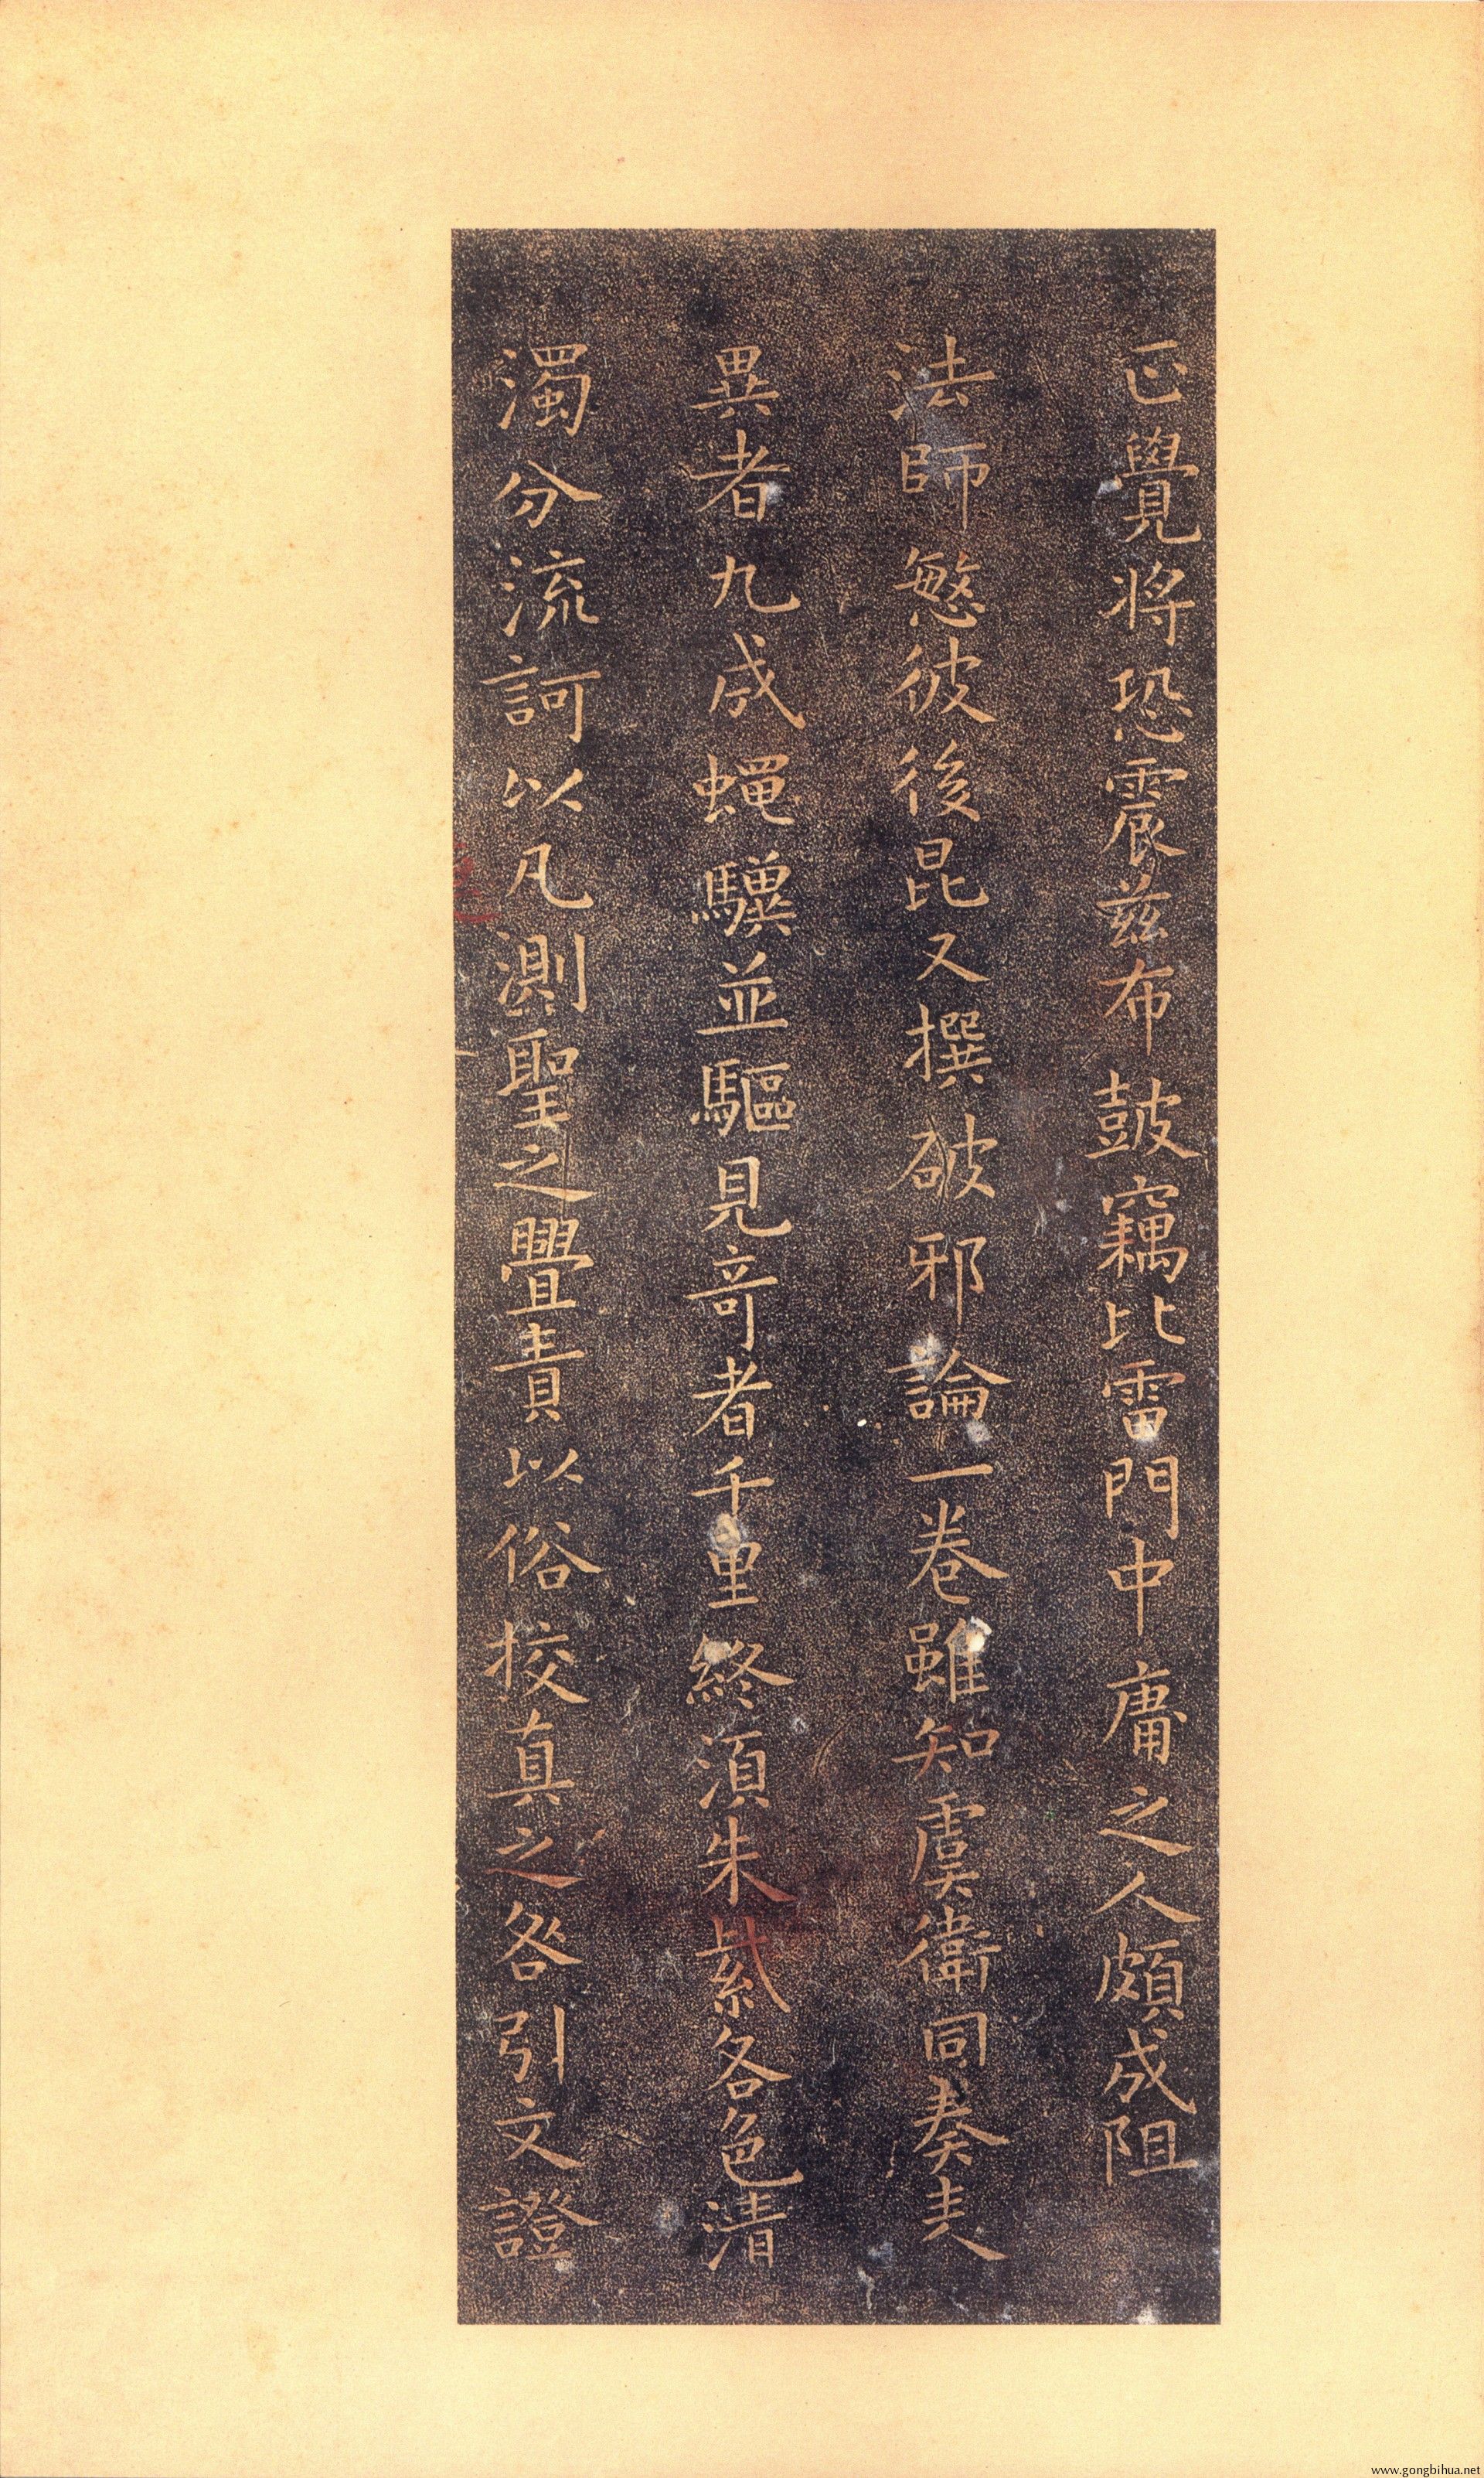 正覺將恐震茲布鼓竊比雷門中庸之人頗成阻
法師愍彼後昆又撰破邪論一卷雖知虞衛同奏夫
異者九成蠅驥並驅見奇者千里終須朱紫各色清
濁分流訶以凡測聖之舋責以俗挍真之咎引文證
www.gongbihua.net